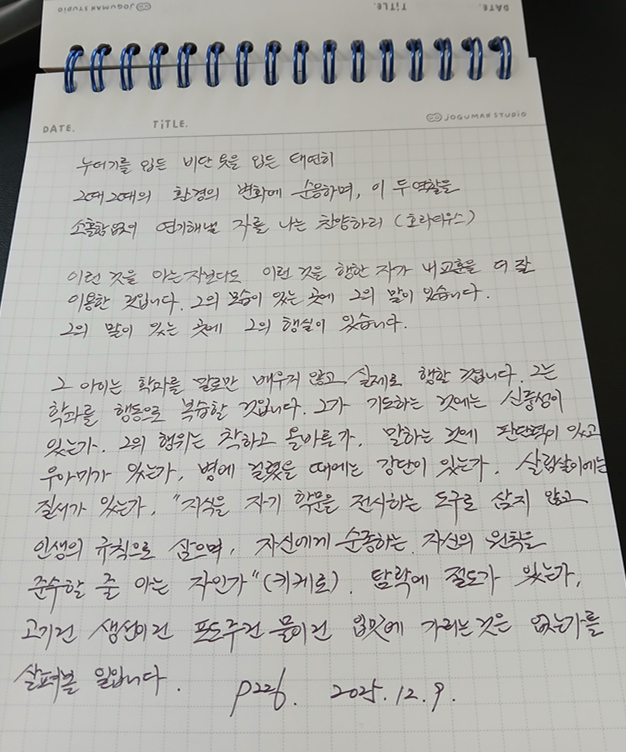 JOGUMAN STUDIO
TITLE.
DATE.
DATE.
TITLE.
JOGUMAN STUDIO
누더기를 입든 비단 옷을 입든 태연히
그때그때의 환경의 변화에 순응하며, 이 두역할을
소홀함없이 연기해낼 자를 나는 찬양하리 (호라티우스)
이런 것을 아는 자보다도 이런 것을 행한 자가 내 교훈을 더 잘
이용한 것입니다. 그의 모습이 있는 곳에 그의 말이 있습니다.
그의 말이 있는 곳에 그의 행실이 있습니다.
그 아이는 학과를 말로만 배우지 않고, 실제로 행한 것입니다. 그는
학과를 행동으로 복습할 것입니다. 그가 기도하는 것에는 신중성이
있는가. 그의 행위는 착하고 올바른가. 말하는 것에 판단력이 있고
우아미가 있는가, 병에 걸렸을 때에는 강단이 있는가. 살림살이에는
질서가 있는가, "지식을 자기 학문을 전시하는 도구로 삼지 않고
인생의 규칙으로 삼으며, 자신에게 순종하는, 자신의 원칙을
준수할 줄 아는 자인가" (키케로). 탐락에 절도가 있는가,
고기건 생선이건 포도주건 물이건 입맛에 가리는 것은 없는가를
살펴볼 일입니다. p226. 2025.12.9.